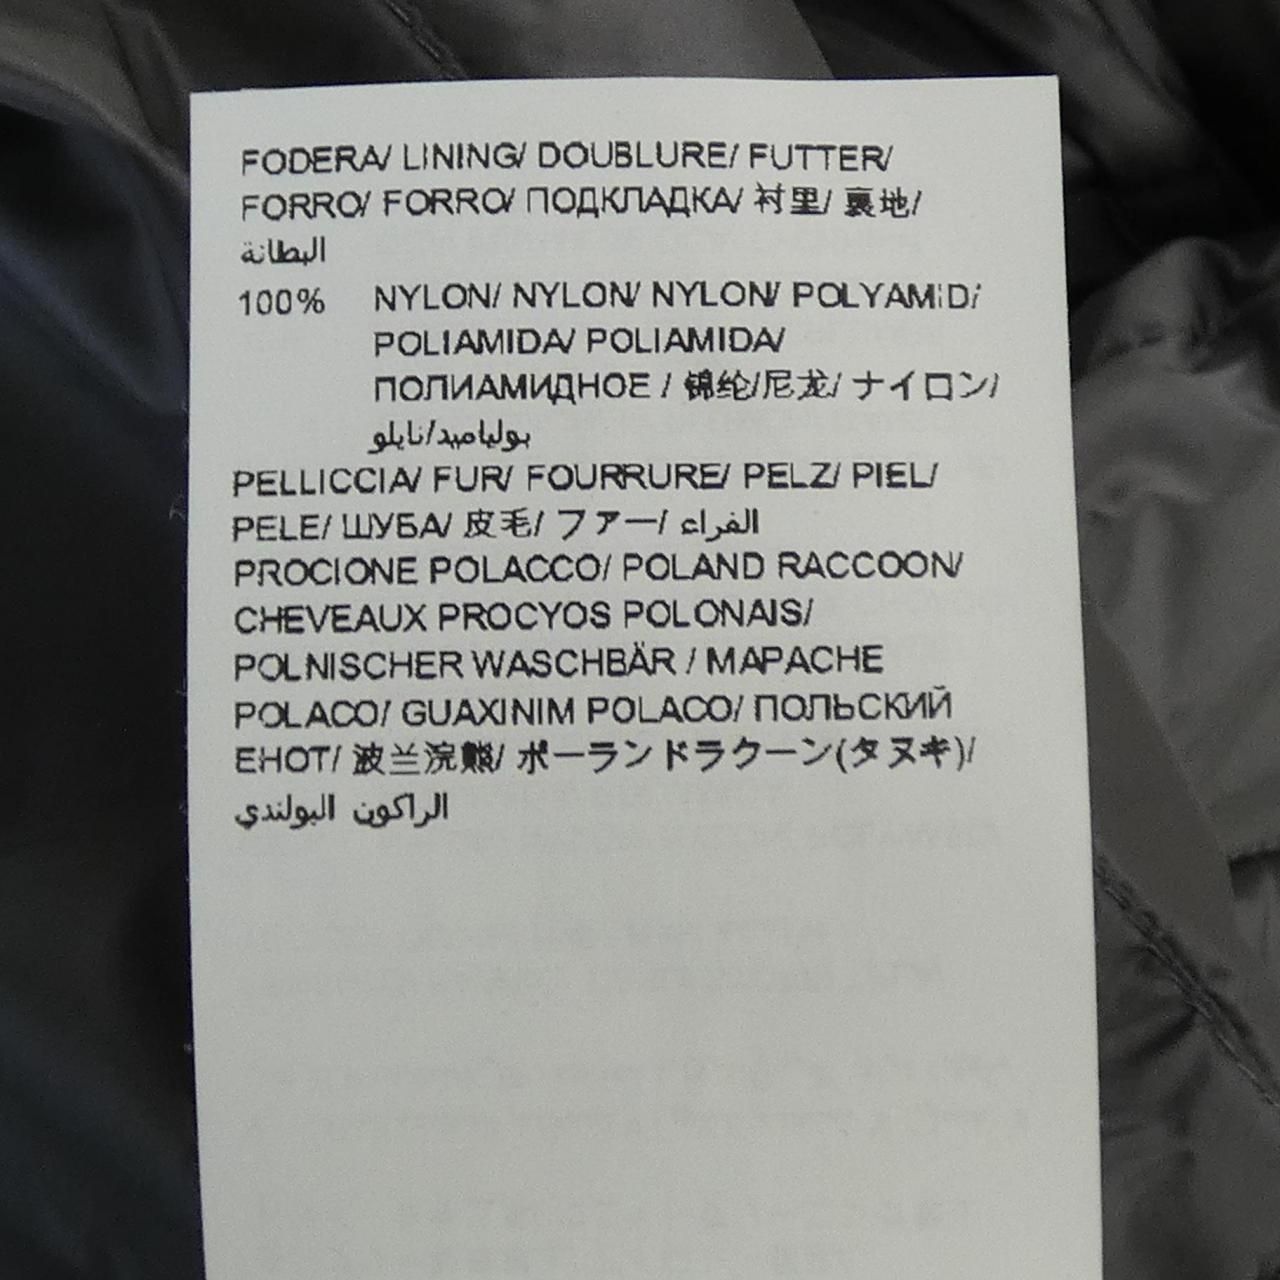 FODERA/ LINING/ DOUBLURE/ FUTTER/
FORRO/ FORRO/ ПОДКЛАДКА/ 衬里/ 裏地/
البطانة
100% NYLON/ NYLON/ NYLON/ POLYAMID/
POLIAMIDA/ POLIAMIDA/
ПОЛИАМИДНОЕ / 锦纶/尼龙/ ナイロン/
بولياميد/نايلو
PELLICCIA/ FUR/ FOURRURE/ PELZ/ PIEL/
PELE/ ШУБА/ 皮毛/ ファー/ الفراء
PROCIONE POLACCO/ POLAND RACCOON/
CHEVEAUX PROCYOS POLONAIS/
POLNISCHER WASCHBÄR / MAPACHE
POLACO/ GUAXINIM POLACO/ ПОЛЬСКИЙ
ЕНОТ/ 波兰浣熊/ ポーランドラクーン(タヌキ)/
الراكون البولندي